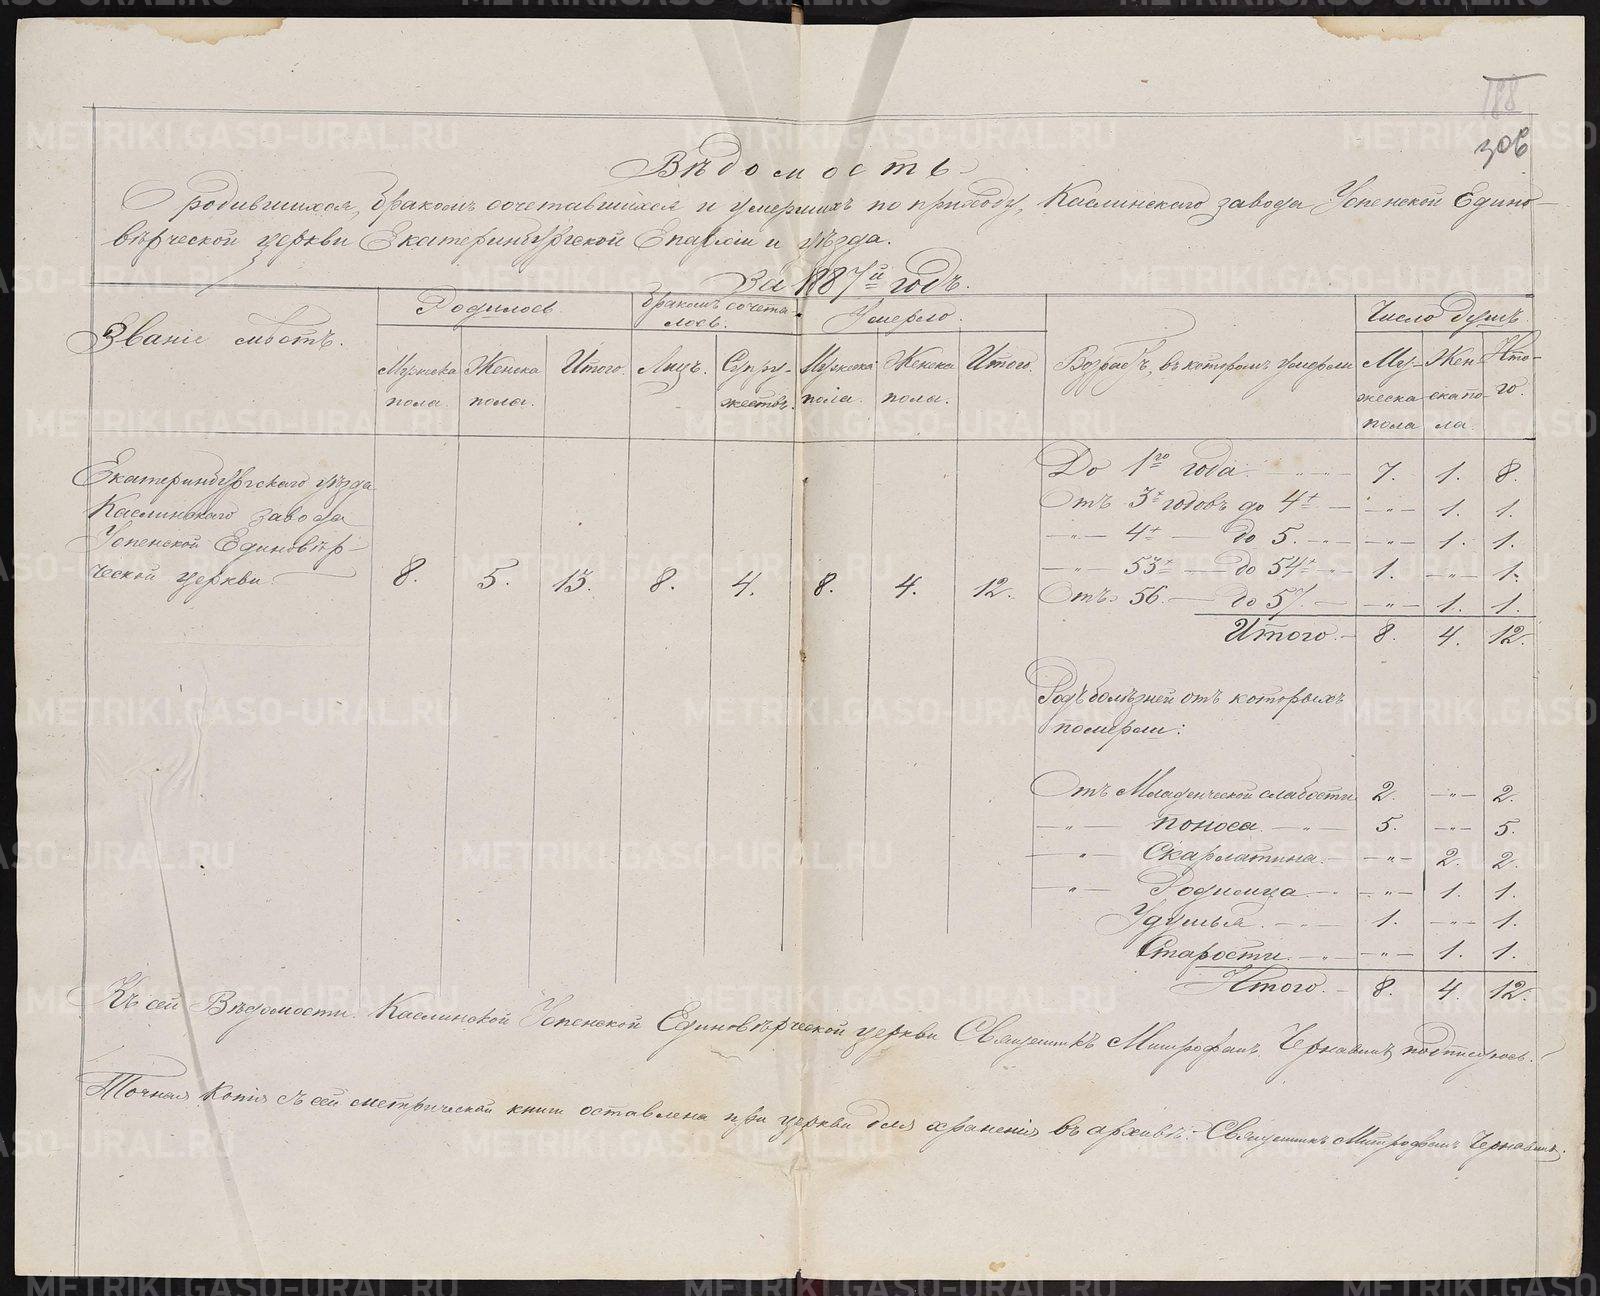 188
306
Вѣдомость
О родившихся, бракомъ сочетавшихся и умершихъ по приходу, Каслинскаго завода Успенской Едино-
вѣрческой церкви Екатеринбургской Епархіи и уѣзда.
За 1887й годъ.
Званіе мѣстъ.
Родилось.
Бракомъ сочета-
лось.
Умерло.
Число душъ.
Мужска
пола.
Женска
пола.
Итого.
Лицъ.
Супру-
жествъ.
Мужска
пола.
Женска
пола.
Итого.
Возрастъ, въ которомъ умерли
Му-
жеска
пола
Жен-
ска по-
ла.
Ито-
го.
Екатеринбургскаго уѣзда
Каслинскаго завода
Успенской Единовѣр-
ческой церкви
8. 5. 13. 8. 4. 8. 4. 12.
До 1го года 7. 1. 8.
Отъ 3х годовъ до 4х — „ — 1. 1.
— „ — 4х — до 5. — „ — 1. 1.
— „ — 53х — до 54х — „ 1. — „ — 1.
Отъ 56. — до 57. — — „ — 1. 1.
Итого. — 8. 4. 12.
Родъ болѣзней отъ которыхъ
померли:
Отъ Младенческой слабости 2. — „ — 2.
— „ — поноса. — „ — 5. — „ — 5.
— „ — Скарлатина. — — „ — 2. 2.
— „ — Родимца. — — „ — 1. 1.
Удушья. — „ — 1. — „ — 1.
Старости. — „ — — „ — 1. 1.
Итого. — 8. 4. 12.
Къ сей Вѣдомости Каслинской Успенской Единовѣрческой церкви Священникъ Митрофанъ Чернавинъ подписуюсь.
Точная копія съ сей метрической книги оставлена при церкви для храненія въ архивѣ. — Священникъ Митрофанъ Чернавинъ.
METRIKI.GASO-URAL.RU